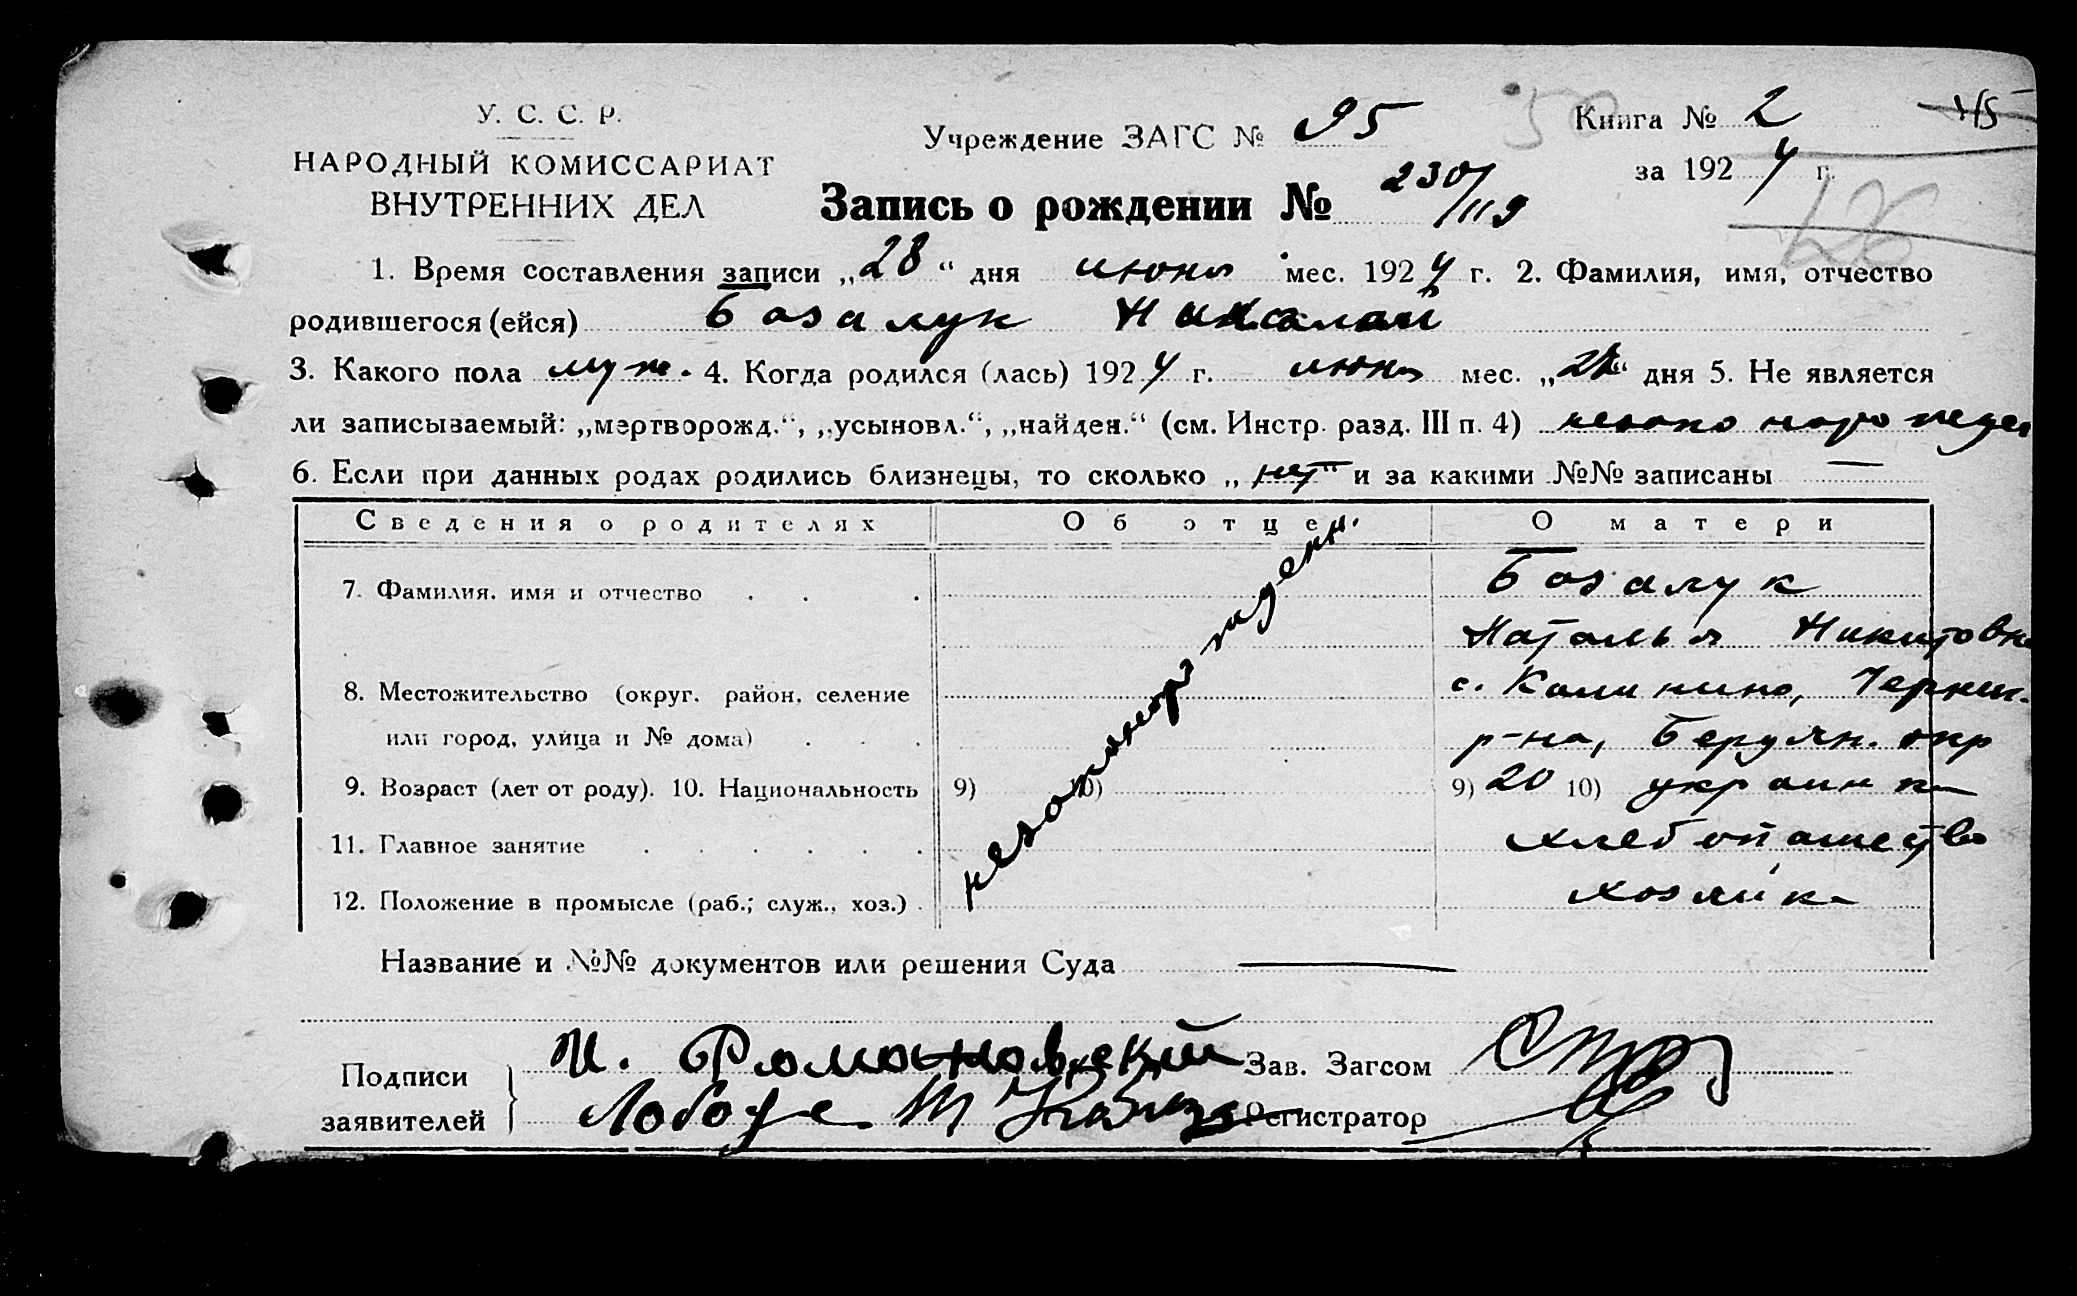 У. С. С. Р.
НАРОДНЫЙ КОМИССАРИАТ
ВНУТРЕННИХ ДЕЛ
Учреждение ЗАГС № 95
Книга № 2
45
за 1924 г.
126
Запись о рождении № 230/119
1. Время составления записи „28“ дня июня мес. 1924 г. 2. Фамилия, имя, отчество
родившегося (ейся) Базалук Николай
3. Какого пола муж. 4. Когда родился (лась) 1924 г. июня мес. дня 5. Не является
ли записываемый: „мертворожд.“, „усыновл.“, „найден.“ (см. Инстр. разд. III п. 4)
6. Если при данных родах родились близнецы, то сколько „нет“ и за какими №№ записаны —
Сведения о родителях Об отце О матери
7. Фамилия, имя и отчество Базалук
Наталья Никитовна
8. Местожительство (округ, район, селение с. Калинино, Черниг.
или город, улица и № дома) р-на, Бердян. окр
9. Возраст (лет от роду). 10. Национальность 9) 10) 9) 20 10) украинка
11. Главное занятие хлебопашество
12. Положение в промысле (раб.; служ., хоз.) хозяйка
Название и №№ документов или решения Суда —
Подписи
заявителей
И. Романовский
Лобода
Зав. Загсом
Регистратор